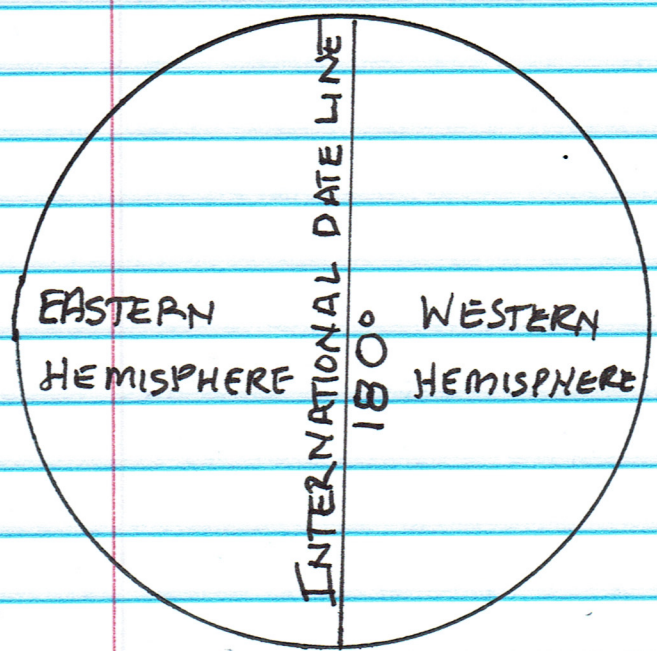 EASTERN
HEMISPHERE
INTERNATIONAL DATE LINE
180°
WESTERN
HEMISPHERE